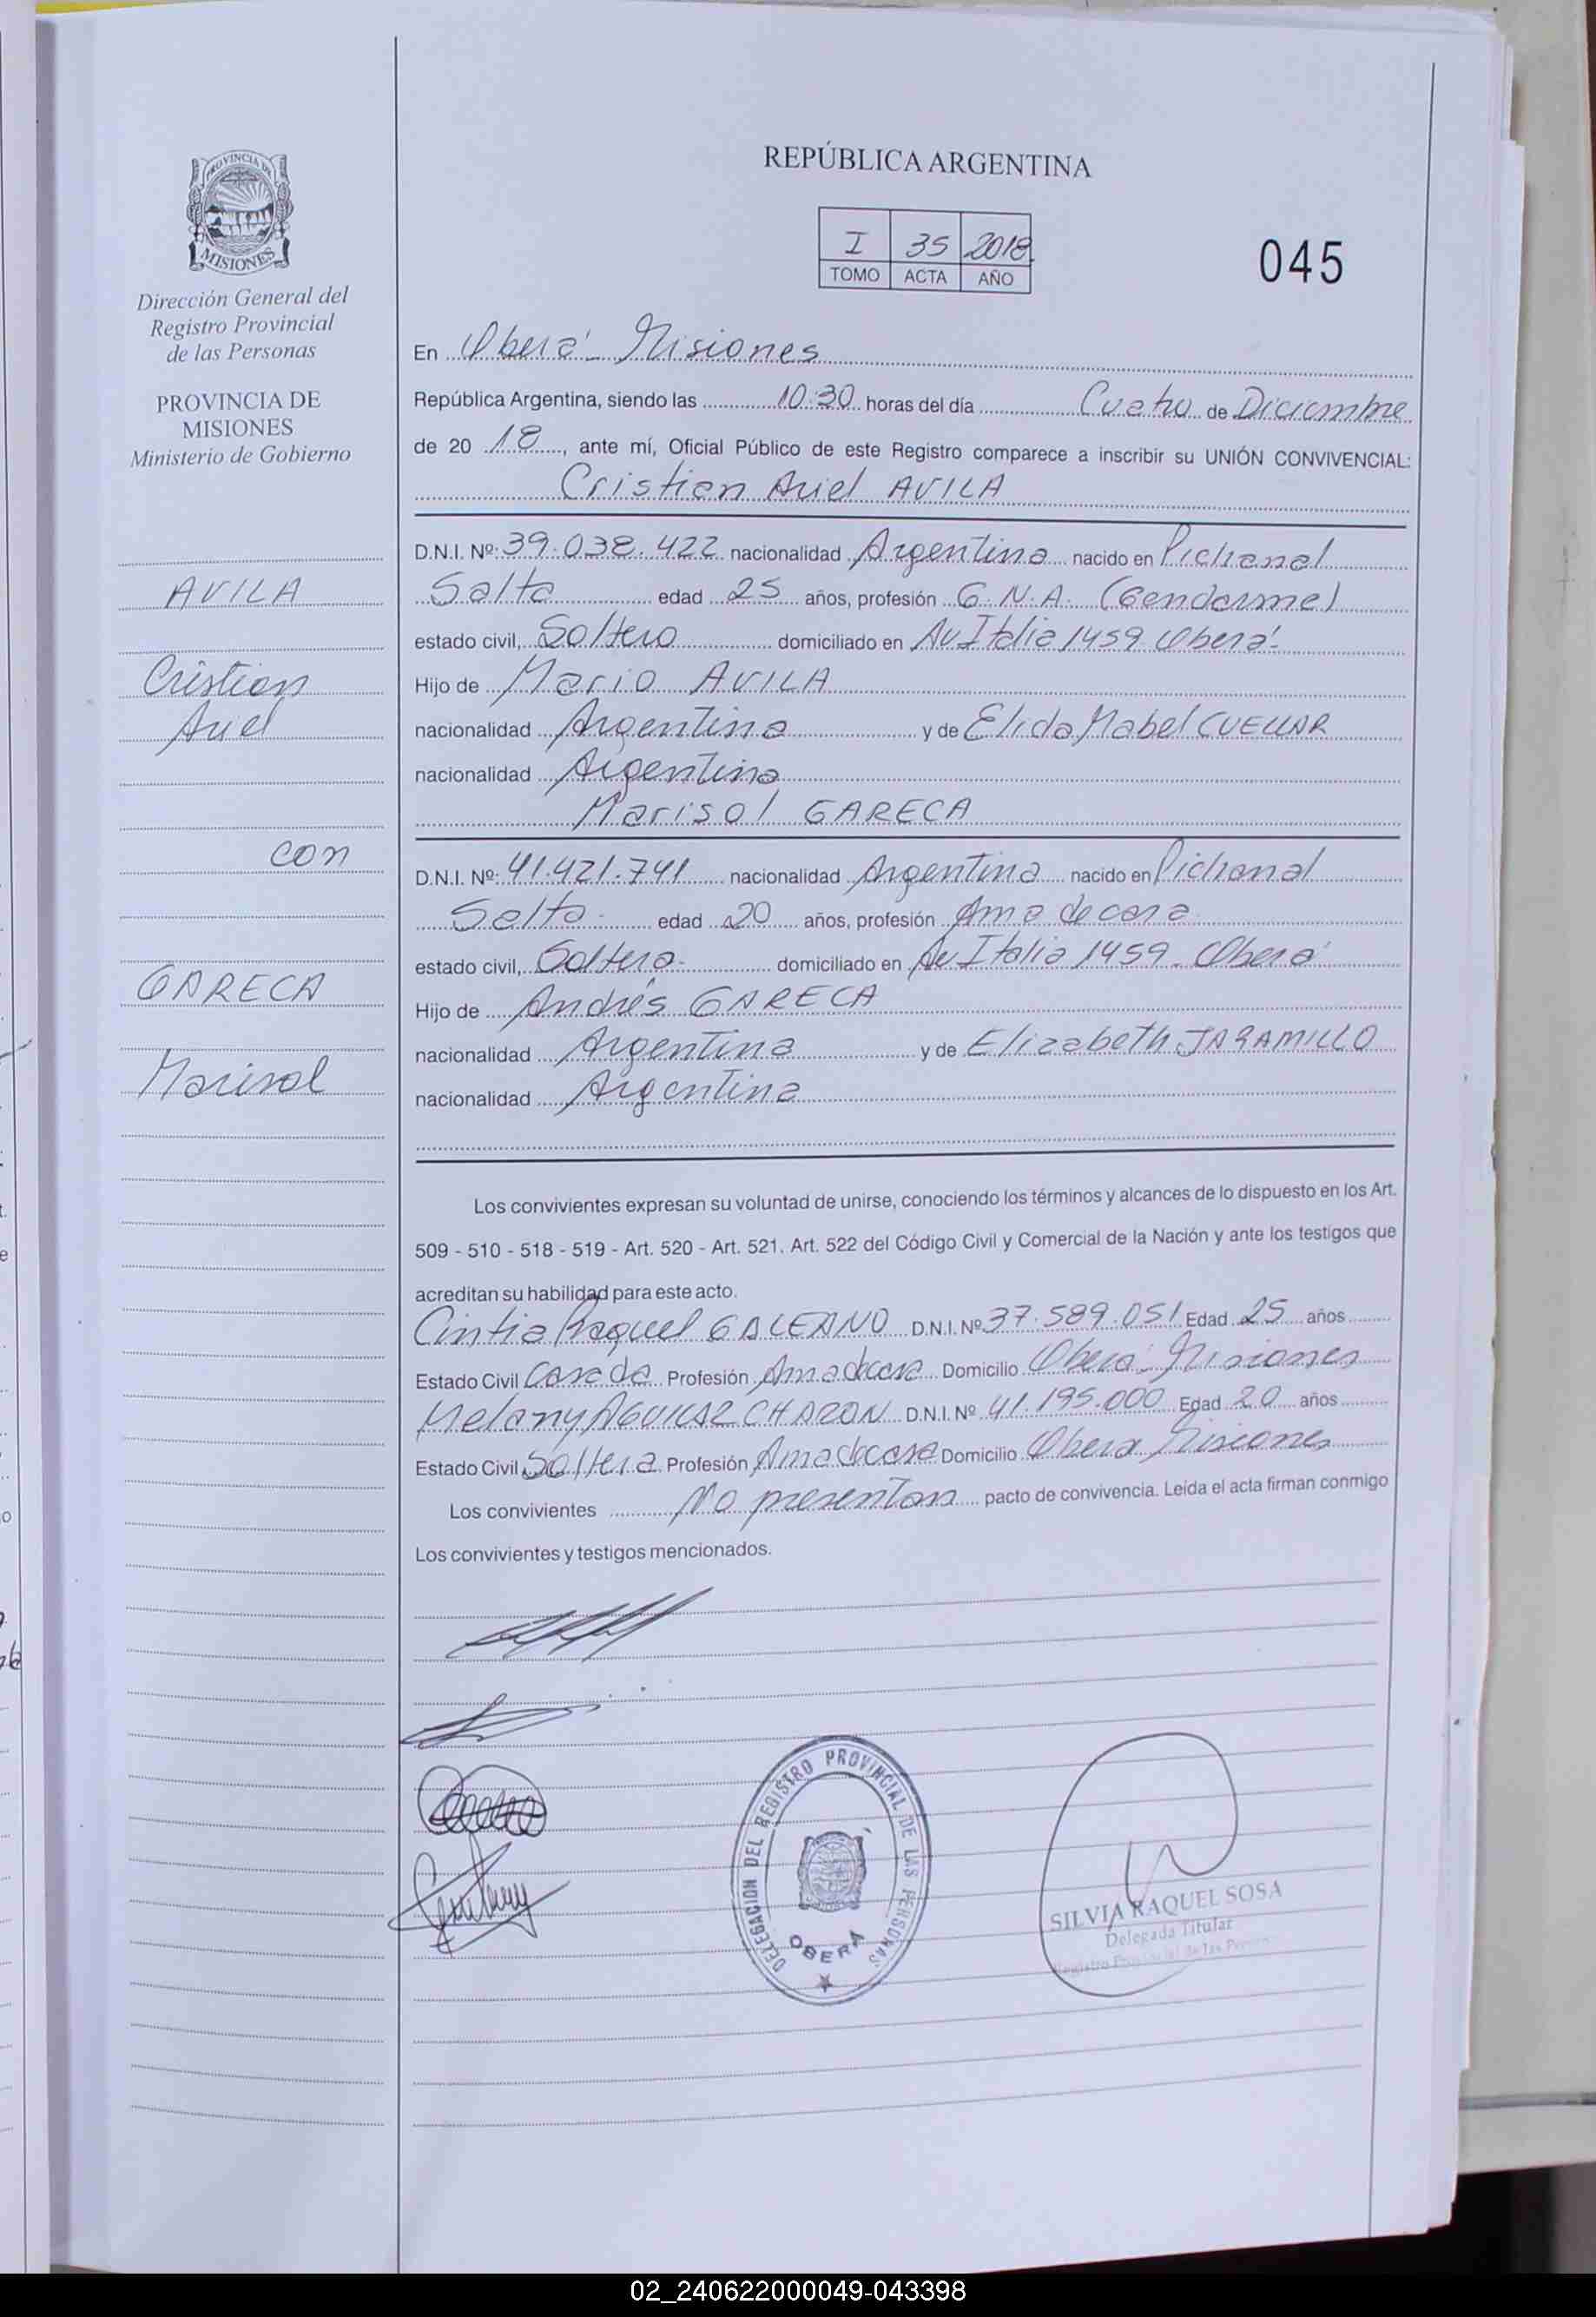 PROVINCIA DE
MISIONES
Dirección General del
Registro Provincial
de las Personas
PROVINCIA DE
MISIONES
Ministerio de Gobierno
AVILA
Cristian
Ariel
con
GARECA
Marisol
REPÚBLICA ARGENTINA
I 35 2018
TOMO ACTA AÑO
045
En Oberá - Misiones
República Argentina, siendo las 10:30 horas del día Cuatro de Diciembre
de 20 18, ante mí, Oficial Público de este Registro comparece a inscribir su UNIÓN CONVIVENCIAL:
Cristian Ariel AVILA
D.N.I. Nº: 39.038.422 nacionalidad Argentina nacido en Pichanal
Salta edad 25 años, profesión G.N.A. (Gendarme)
estado civil, Soltero domiciliado en Av Italia 1459 Oberá-
Hijo de Mario AVILA
nacionalidad Argentina y de Elida Mabel CUELLAR
nacionalidad Argentina
Marisol GARECA
D.N.I. Nº: 41.421.741 nacionalidad Argentina nacido en Pichanal
Salta- edad 20 años, profesión Ama de casa
estado civil, Soltera- domiciliado en Av Italia 1459- Oberá
Hijo de Andrés GARECA
nacionalidad Argentina y de Elizabeth JARAMILLO
nacionalidad Argentina
Los convivientes expresan su voluntad de unirse, conociendo los términos y alcances de lo dispuesto en los Art.
509 - 510 - 518 - 519 - Art. 520 - Art. 521. Art. 522 del Código Civil y Comercial de la Nación y ante los testigos que
acreditan su habilidad para este acto.
Cintia Raquel GALEANO D.N.I. Nº 37.589.051 Edad 25 años
Estado Civil Casada Profesión Ama de casa Domicilio Oberá - Misiones
Melany AGUILAR CHARON D.N.I. Nº 41.195.000 Edad 20 años
Estado Civil Soltera Profesión Ama de casa Domicilio Oberá Misiones
Los convivientes No presentan pacto de convivencia. Leída el acta firman conmigo
Los convivientes y testigos mencionados.
DELEGACION DEL REGISTRO PROVINCIAL DE LAS PERSONAS
OBERÁ
SILVIA RAQUEL SOSA
Delegada Titular
Registro Provincial de las Personas
02_240622000049-043398